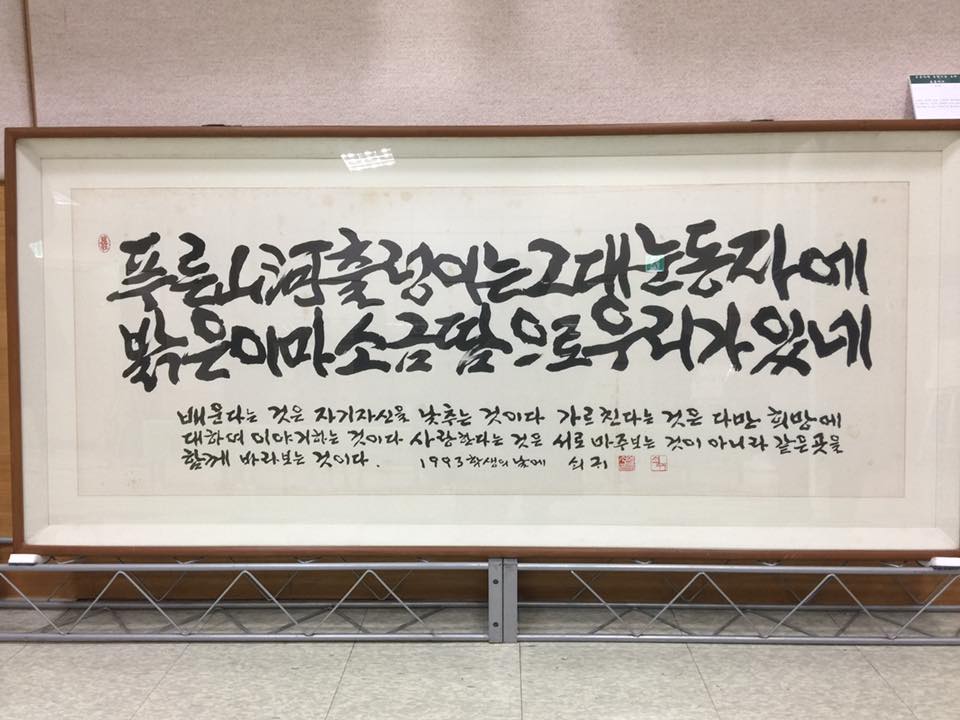 푸른 山河 출렁이는 그대 눈동자에
밝은 이마 소금땀으로 우리가 있네
배운다는 것은 자기자신을 낮추는 것이다 가르친다는 것은 다만 희망에
대하여 이야기하는 것이다 사랑한다는 것은 서로 마주보는 것이 아니라 같은 곳을
함께 바라보는 것이다. 1993 학생의 날에 쇠귀